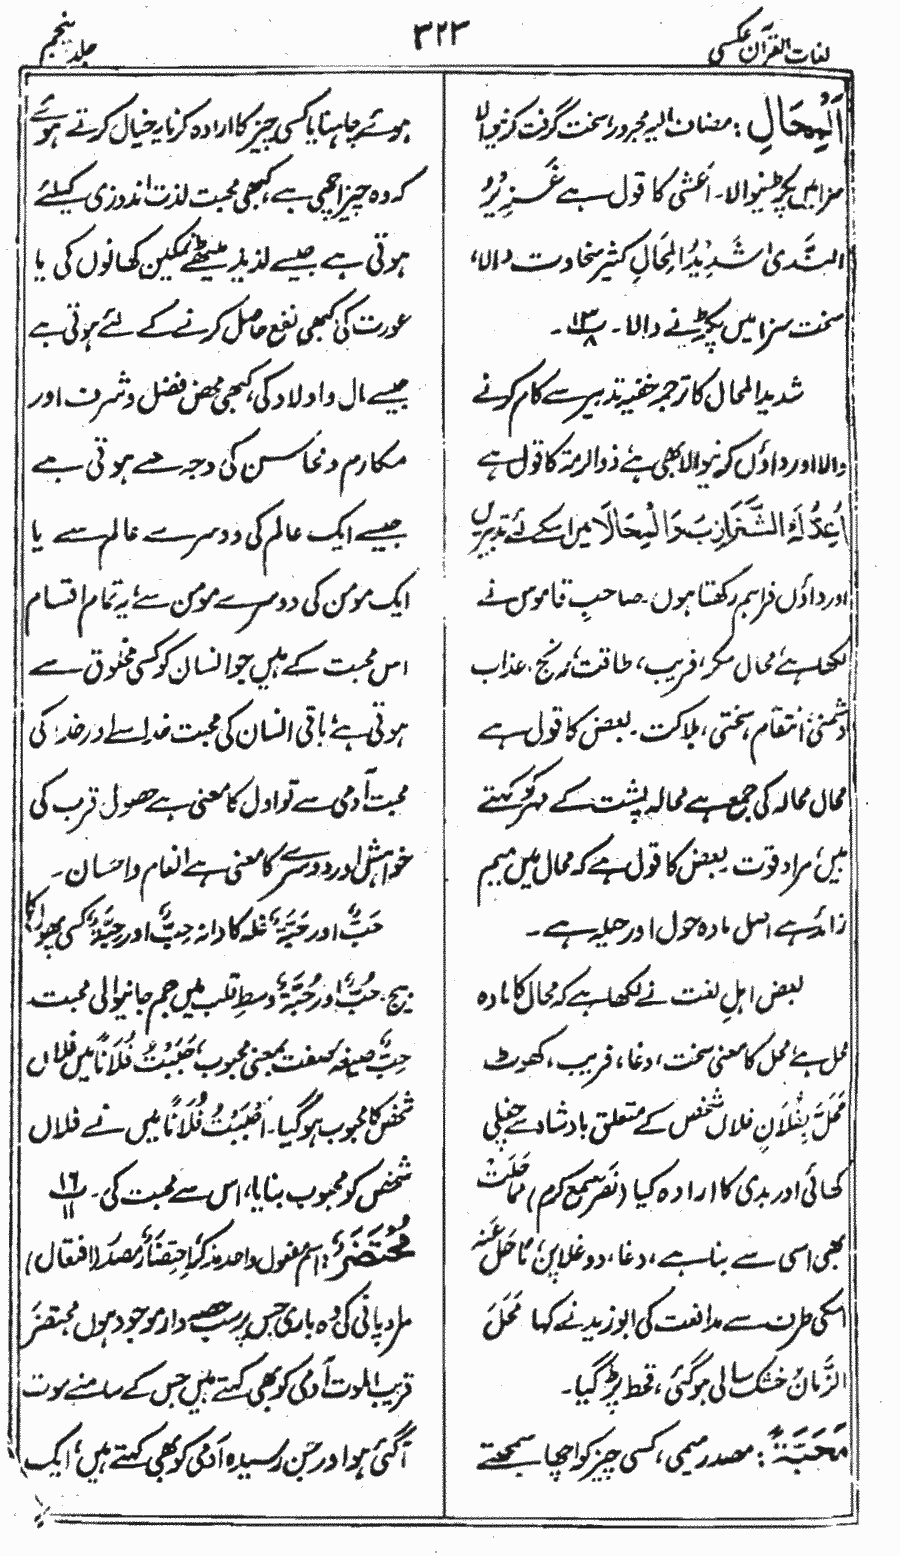 لغات القرآن عکسی
۳۲۳
جلد پنجم
اَلْمِحَالِ: مضاف الیہ مجرور، سخت گرفت کرنیوالا
سزا میں پکڑنیوالا۔ اعشیٰ کا قول ہے غَزِیْرُ
النَّدیٰ شَدِیْدُ الْمِحَالِ کثیر سخاوت والا،
سخت سزا میں پکڑنے والا۔ ۱۳/۸ ۔
شدید المحال کا ترجمہ خفیہ تدبیر سے کام کرنے
والا اور داؤں کرنیوالا بھی ہے ذو الرمۃ کا قول ہے
میں اسکے لئے تدبیریں
اور داؤں فراہم رکھتا ہوں۔ صاحبِ قاموس نے
لکھا ہے محال مکر، فریب، طاقت، رنج، عذاب
دشمنی، انتقام، سختی، ہلاکت۔ بعض کا قول ہے
محال محالہ کی جمع ہے محالہ پشت کے مہرہ کو کہتے
ہیں، مراد قوت۔ بعض کا قول ہے کہ محال میں میم
زائد ہے اصل مادہ حول اور حیلہ ہے۔
بعض اہلِ لغت نے لکھا ہے کہ محال کا مادہ
محل ہے، محل کا معنی سخت، دغا، فریب، کھوٹ
مَحَلَ بِفُلَانٍ فلاں شخص کے متعلق بادشاہ سے چغلی
کھائی اور بدی کا ارادہ کیا (نصر سمع کرم) مماحلت
بھی اسی سے بنا ہے، دغا، دوغلا پن، مَاحَلَ عَنْہُ
اسکی طرف سے مدافعت کی ابو زید نے کہا مَحَلَ
الزَّمَانُ خشک سالی ہو گئی، قحط پڑ گیا۔
مَحَبَّۃً: مصدر میمی، کسی چیز کو اچھا سمجھتے
ہوئے چاہنا یا کسی چیز کا ارادہ کرنا یہ خیال کرتے ہوئے
کہ وہ چیز اچھی ہے، کبھی محبت لذت اندوزی کیلئے
ہوتی ہے جیسے لذیذ میٹھے نمکین کھانوں کی یا
عورت کی کبھی نفع حاصل کرنے کے لئے ہوتی ہے
جیسے مال و اولاد کی، کبھی محض فضل و شرف اور
مکارم و محاسن کی وجہ سے ہوتی ہے
جیسے ایک عالم کی دوسرے عالم سے یا
ایک مومن کی دوسرے مومن سے، یہ تمام اقسام
اس محبت کے ہیں جو انسان کو کسی مخلوق سے
ہوتی ہے، باقی انسان کی محبت خدا سے اور خدا کی
محبت آدمی سے تو اول کا معنی ہے حصولِ قرب کی
خواہش اور دوسرے کا معنی ہے انعام و احسان۔
حَبٌّ اور حَبَّۃٌ، غلہ کا دانہ حِبٌّ اور حِبَّۃٌ، کسی پھول کا
بیج۔ حُبٌّ اور حُبَّۃٌ، وسطِ قلب میں جم جانیوالی محبت
حِبٌّ صیغہ صفت بمعنی محبوب، حَبَبْتُ فُلَانًا میں فلاں
شخص کا محبوب ہو گیا۔ اَحْبَبْتُ فُلَانًا میں نے فلاں
شخص کو محبوب بنایا، اس سے محبت کی۔ ۱۶/۱۱
مُحْتَضَرٌ: اسم مفعول واحد مذکر، اِحْتِضَارٌ مصدر (افتعال)
مراد پانی کی وہ باری جس پر سب حصے دار موجود ہوں محتضر
قریب الموت آدمی کو بھی کہتے ہیں جس کے سامنے موت
آگئی ہو اور جن رسیدہ آدمی کو بھی کہتے ہیں، ایک